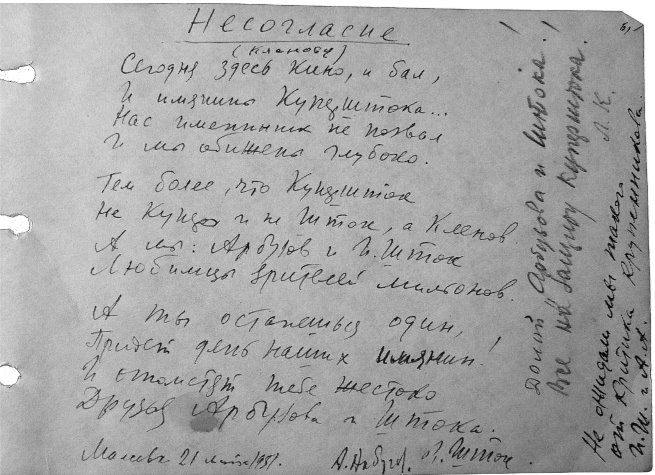 Несогласие
(Кленову)
Сегодня здесь кино, и бал,
И имянины Кунцштока...
Нас именинник не позвал
И мы обижены глубоко.
Тем более, что Кунцшток
Не Кунц и не Шток, а Кленов.
А мы: Арбузов и И. Шток
Любимцы зрителей миллионов.
А ты останешься один,
Придет день наших имянин!
И отомстят тебе жестоко
Друзья Арбузова и Штока.
Москва 21 1951.
А. Арбузов. И. Шток
Долой Арбузова и Штока!
Все на защиту Кунцштока!
Л. К.
Не ожидали мы такого
от критика Крупенникова.
И. Ш. и А. А.